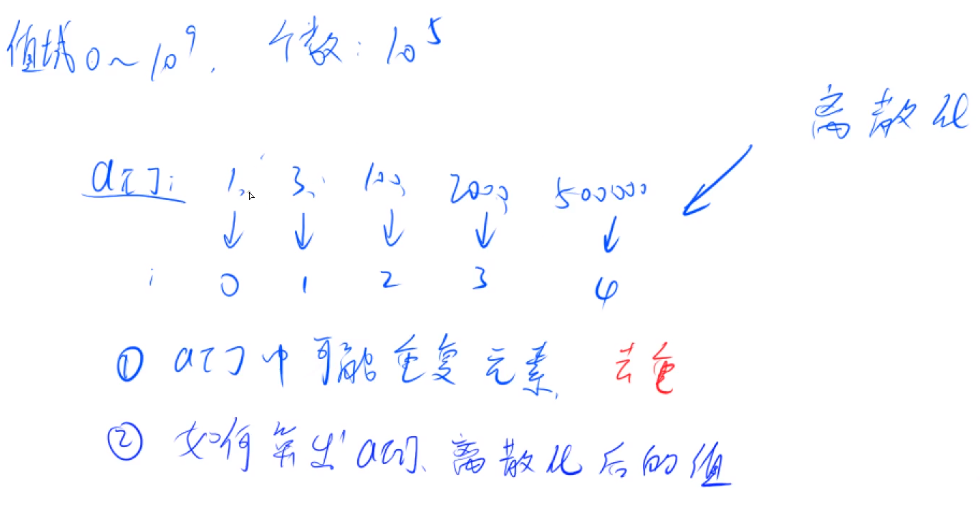 值域 0~10⁹. 个数: 10⁵
离散化
a[]: 1, 3, 100, 2000, 500000
↓ ↓ ↓ ↓ ↓
i 0 1 2 3 4
① a[]中可能重复元素, 去重
② 如何算出a[i]离散化后的值